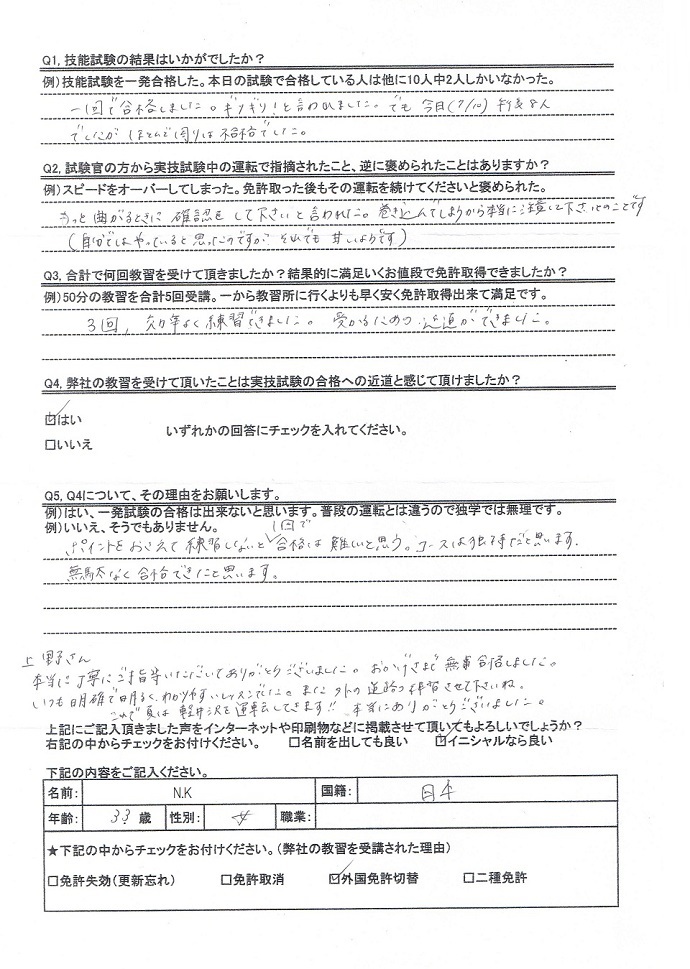 Q1, 技能試験の結果はいかがでしたか？
例）技能試験を一発合格した。本日の試験で合格している人は他に10人中2人しかいなかった。
一回で合格しました。ギリギリ！と言われました。でも 今日(7/10) 8人
でしたが ほとんど周りは不合格でした。
Q2, 試験官の方から実技試験中の運転で指摘されたこと、逆に褒められたことはありますか？
例）スピードをオーバーしてしまった。免許取った後もその運転を続けてくださいと褒められた。
もっと曲がるときに 確認をして下さいと言われた。巻き込んでしまうから本当に注意して下さいとのことです
（自分ではやっていると思ったのですが、それでも 甘いようです）
Q3, 合計で何回教習を受けて頂きましたか？結果的に満足いくお値段で免許取得できましたか？
例）50分の教習を合計5回受講。一から教習所に行くよりも早く安く免許取得出来て満足です。
3回, 効率よく練習できました。 受かるための 近道ができました。
Q4, 弊社の教習を受けて頂いたことは実技試験の合格への近道と感じて頂けましたか？
☑はい
いずれかの回答にチェックを入れてください。
□いいえ
Q5, Q4について、その理由をお願いします。
例）はい、一発試験の合格は出来ないと思います。普段の運転とは違うので独学では無理です。
例）いいえ、そうでもありません。
1回で
ポイントをおさえて 練習しないと 合格は 難しいと思う。コースは独特だと思います.
無駄なく 合格できたと思います。
上野さん
本当に丁寧にご指導いただいてありがとうございました。おかげさまで 無事 合格しました。
いつも明確で明るく、わかりやすいレッスンでした。また 外の道路も練習させて下さいね。
これで夏は軽井沢を運転してきます!! 本当にありがとうございました。
上記にご記入頂きました声をインターネットや印刷物などに掲載させて頂いてもよろしいでしょうか？
右記の中からチェックをお付けください。 □名前を出しても良い ☑イニシャルなら良い
下記の内容をご記入ください。
名前： N.K 国籍： 日本
年齢： 33 歳 性別： 女 職業：
★下記の中からチェックをお付けください。（弊社の教習を受講された理由）
□免許失効（更新忘れ） □免許取消 ☑外国免許切替 □二種免許